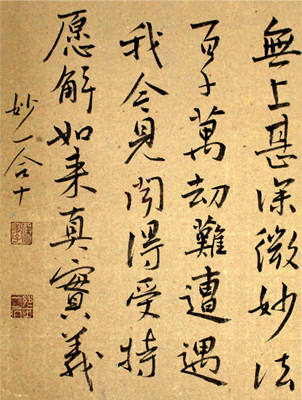 無上甚深微妙法
百千萬劫難遭遇
我今見聞得受持
愿解如来真實義
妙一合十